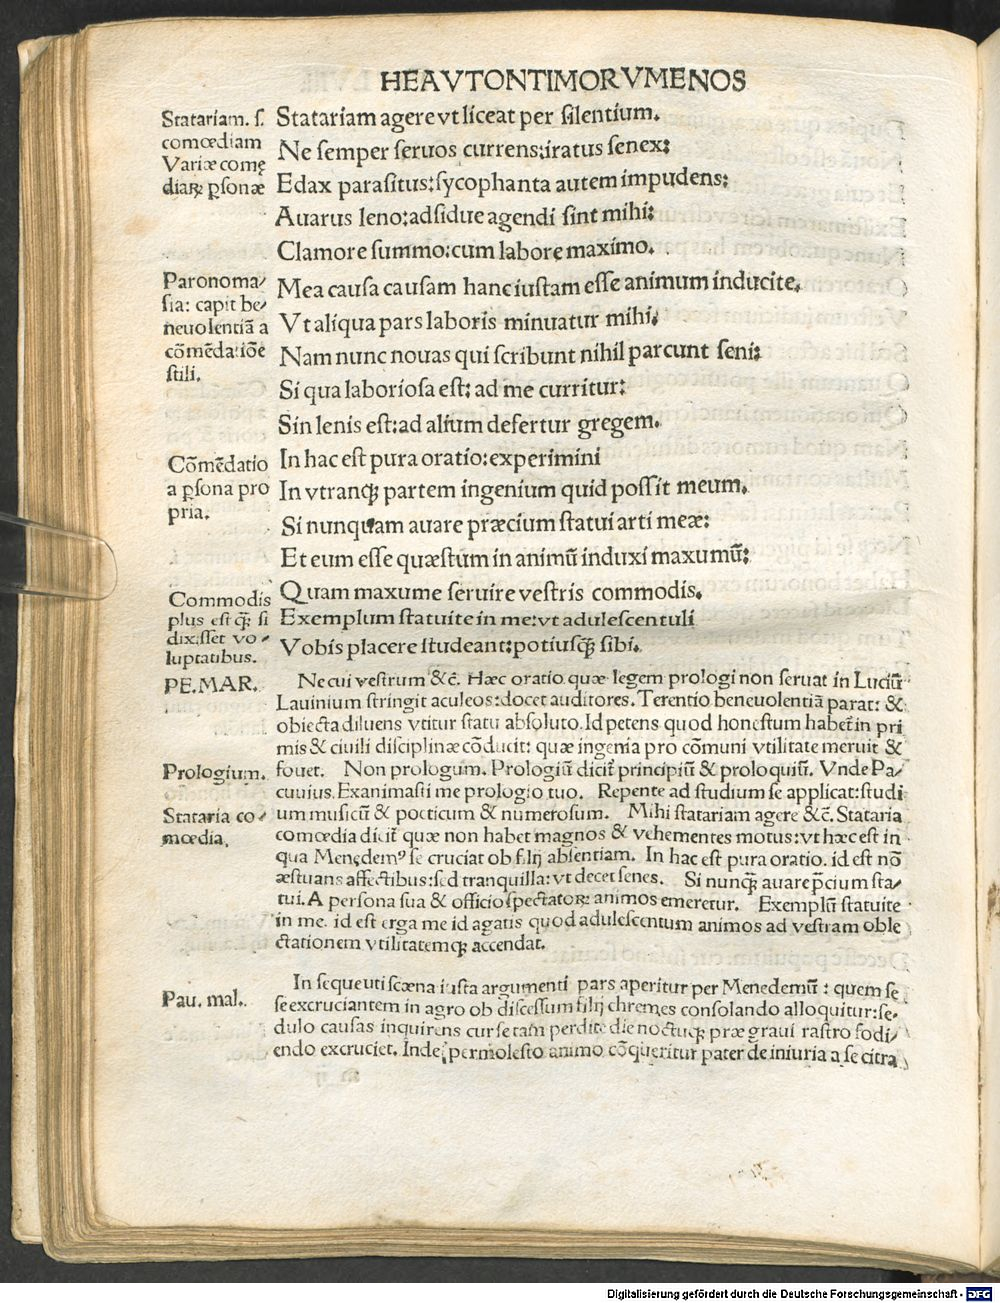 HEAVTONTIMORVMENOS
Statariam. ſ.
comœdiam
Variæ comę
diaꝝ pſonæ
Statariam agere vt liceat per ſilentium.
Ne ſemper ſeruos currens:iratus ſenex:
Edax paraſitus:ſycophanta autem impudens:
Auarus leno:adſidue agendi ſint mihi:
Clamore ſummo:cum labore maximo.
Paronoma/
ſia: capit be/
neuolentiā a
cōmēdatiōe
ſtili.
Mea cauſa cauſam hanc iuſtam eſſe animum inducite.
Vt aliqua pars laboris minuatur mihi.
Nam nunc nouas qui ſcribunt nihil parcunt ſeni:
Si qua laborioſa eſt: ad me curritur:
Sin lenis eſt:ad alium defertur gregem.
Cōmēdatio
a pſona pro
pria.
In hac eſt pura oratio:experimini
In vtranqꝫ partem ingenium quid poſſit meum.
Si nunquam auare præcium ſtatui arti meæ:
Et eum eſſe quæſtum in animū induxi maxumū:
Commodis
plus eſt qꝫ ſi
dixiſſet vo/
luptatibus.
Quam maxume ſeruire veſtris commodis.
Exemplum ſtatuite in me:vt aduleſcentuli
Vobis placere ſtudeant:potiuſqꝫ ſibi.
PE.MAR.
Ne cui veſtrum &c̄. Hæc oratio quæ legem prologi non ſeruat in Luciū
Lauinium ſtringit aculeos:docet auditores. Terentio beneuolentiā parat: &
obiecta diluens vtitur ſtatu abſoluto. Id petens quod honeſtum habet̄ in pri
mis & ciuili diſciplinæ cōducit: quæ ingenia pro cōmuni vtilitate meruit &
Prologium.
fouet. Non prologum. Prologiū dicit̄ principiū & proloquiū. Vnde Pa/
cuuius. Exanimaſti me prologio tuo. Repente ad ſtudium ſe applicat:ſtudi
Stataria co/
mœdia.
um muſicū & poeticum & numeroſum. Mihi ſtatariam agere &c̄. Stataria
comœdia dicit̄ quæ non habet magnos & vehementes motus:vt hæc eſt in
qua Menędemꝰ ſe cruciat ob filij abſentiam. In hac eſt pura oratio. id eſt nō
æſtuans affectibus:ſed tranquilla:vt decet ſenes. Si nunqꝫ auare p̄cium ſta/
tui. A perſona ſua & officio ſpectatoꝝ animos emeretur. Exemplū ſtatuite
in me. id eſt erga me id agatis quod aduleſcentum animos ad veſtram oble
ctationem vtilitatemqꝫ accendat.
Pau. mal.
In ſequenti ſcæna iuſta argumenti pars aperitur per Menedemū : quem ſe
ſe excruciantem in agro ob diſceſſum filij chremes conſolando alloquitur:ſe/
dulo cauſas inquirens cur ſe tam perdite die noctuqꝫ præ graui raſtro fodi/
endo excruciet. Inde permoleſto animo cōqueritur pater de iniuria a ſe citra
Digitalisierung gefördert durch die Deutsche Forschungsgemeinschaft - DFG